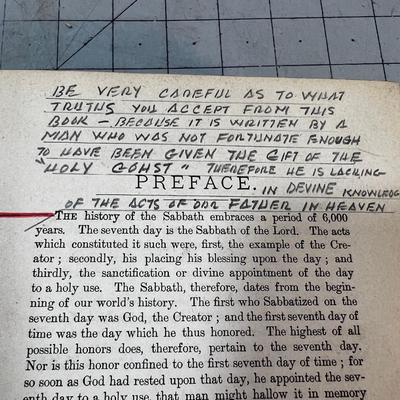 BE VERY CAREFUL AS TO WHAT
TRUTHS YOU ACCEPT FROM THIS
BOOK – BECAUSE IT IS WRITTEN BY A
MAN WHO WAS NOT FORTUNATE ENOUGH
TO HAVE BEEN GIVEN THE GIFT OF THE
"HOLY GOHST" THEREFORE HE IS LACKING
PREFACE. IN DEVINE KNOWLEDG
OF THE ACTS OF OUR FATHER IN HEAVEN
THE history of the Sabbath embraces a period of 6,000
years. The seventh day is the Sabbath of the Lord. The acts
which constituted it such were, first, the example of the Cre-
ator; secondly, his placing his blessing upon the day; and
thirdly, the sanctification or divine appointment of the day
to a holy use. The Sabbath, therefore, dates from the begin-
ning of our world's history. The first who Sabbatized on the
seventh day was God, the Creator; and the first seventh day of
time was the day which he thus honored. The highest of all
possible honors does, therefore, pertain to the seventh day.
Nor is this honor confined to the first seventh day of time; for
so soon as God had rested upon that day, he appointed the sev-
enth day to a holy use, that man might hallow it in memory